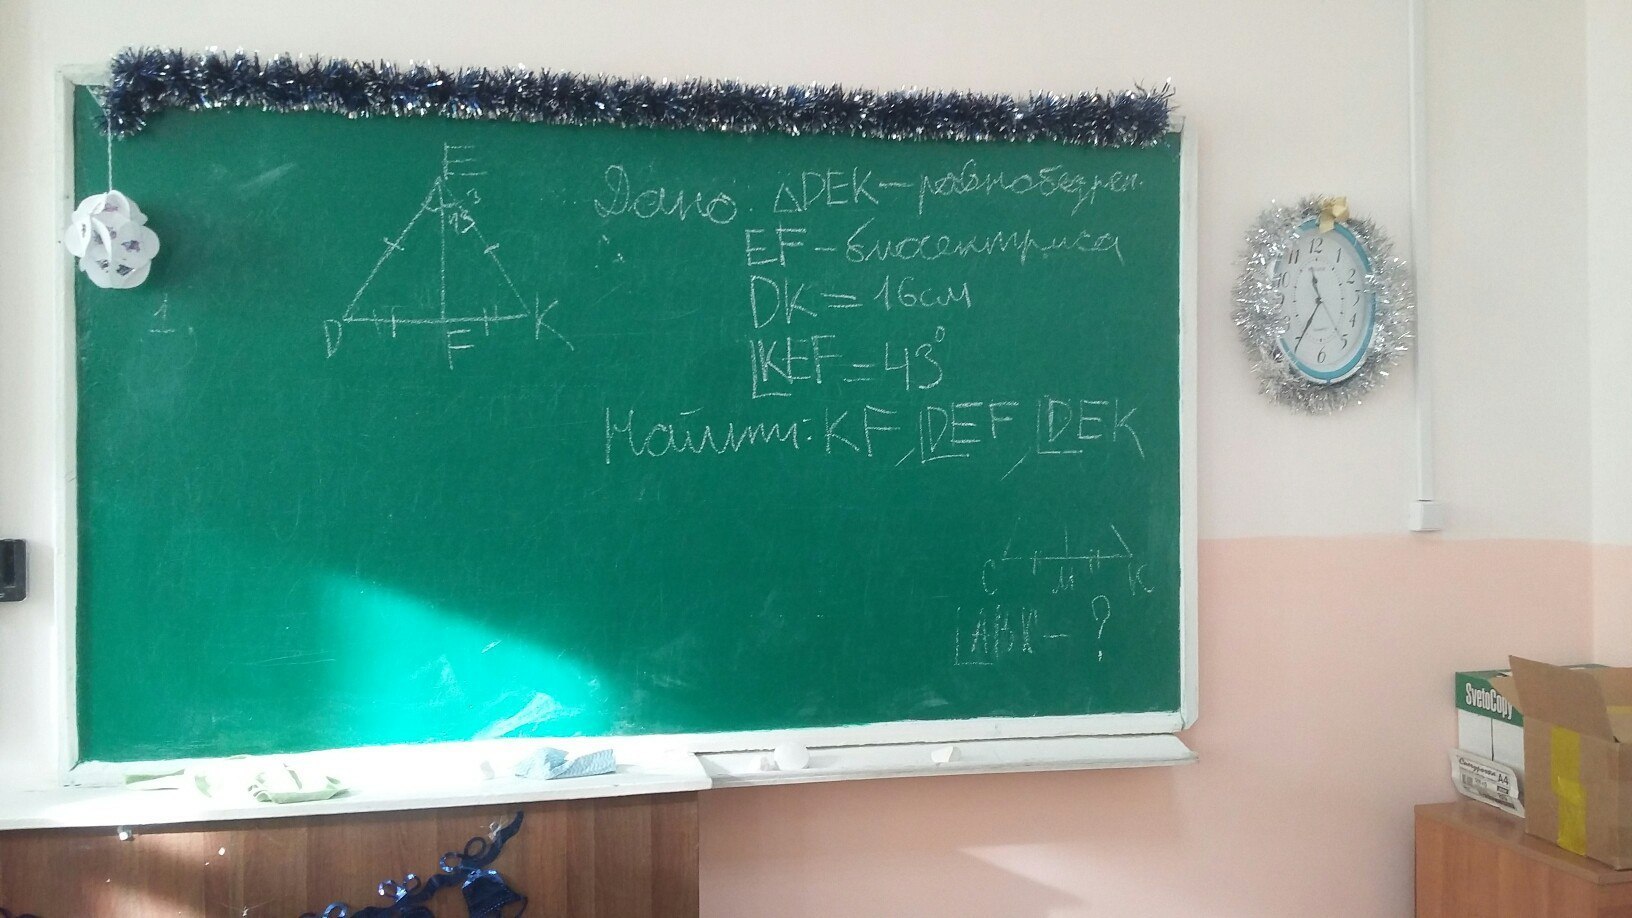 E
43°
D F K
1.
Дано: △DEK – равнобедрен.
EF – биссектриса
DK = 16 см
∠KEF = 43°
Найти: KF, ∠DEF, ∠DEK
C M K
∠ABK – ?
12
1
2
3
4
5
6
7
8
9
10
11
SvetoCopy
Снегурочка A4